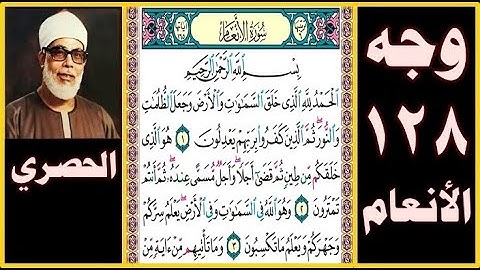 وجه
١٢٨
الأنعام
الحصري
سُورَةُ الأَنْعَامِ
بِسْمِ اللَّهِ الرَّحْمَٰنِ الرَّحِيمِ
الْحَمْدُ لِلَّهِ الَّذِي خَلَقَ السَّمَٰوَٰتِ وَالْأَرْضَ وَجَعَلَ الظُّلُمَٰتِ
وَالنُّورَ ثُمَّ الَّذِينَ كَفَرُوا بِرَبِّهِمْ يَعْدِلُونَ ١ هُوَ الَّذِي
خَلَقَكُم مِّن طِينٍ ثُمَّ قَضَىٰ أَجَلًا وَأَجَلٌ مُّسَمًّى عِندَهُ ثُمَّ أَنتُمْ
تَمْتَرُونَ ٢ وَهُوَ اللَّهُ فِي السَّمَٰوَٰتِ وَفِي الْأَرْضِ يَعْلَمُ سِرَّكُمْ
وَجَهْرَكُمْ وَيَعْلَمُ مَا تَكْسِبُونَ ٣ وَمَا تَأْتِيهِم مِّنْ ءَايَةٍ مِّنْ